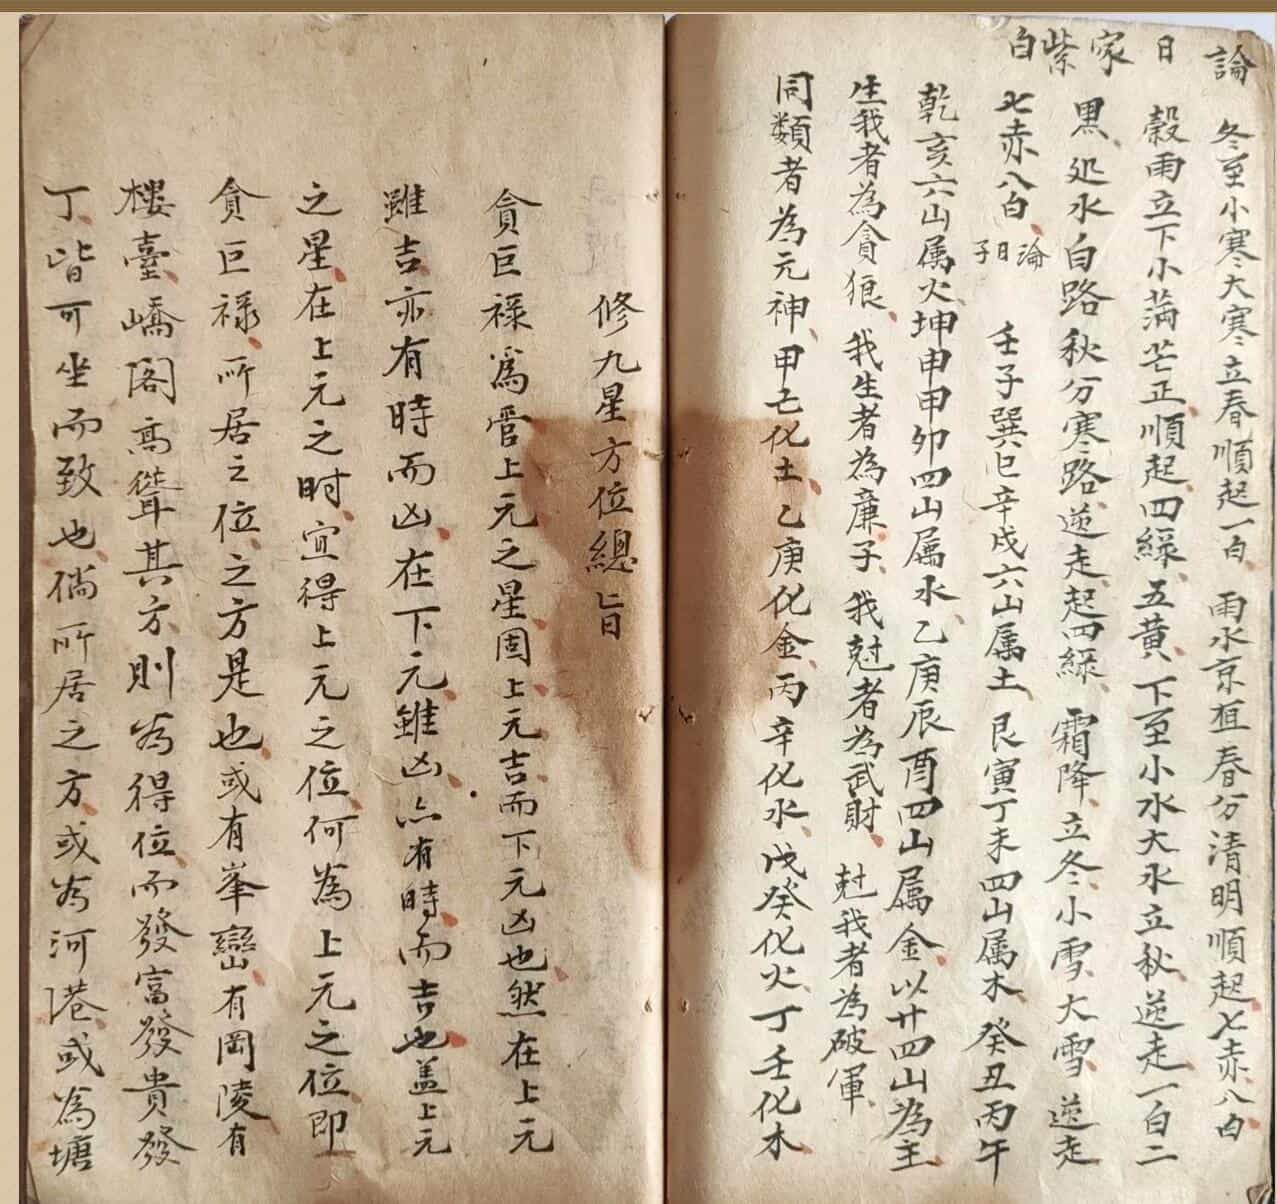 論
日
家
紫
白
冬至小寒大寒立春順起一白 雨水京直春分清明順起七赤八白
穀雨立下小滿芒正順起四綠五黃下至小水大水立秋逆走一白二
黑処水白路秋分寒路逆走起四綠 霜降立冬小雪大雪逆走
七赤八白 論日子 壬子巽巳辛戌六山属土艮寅丁未四山属木癸丑丙午
乾亥六山属火坤申甲卯四山属水乙庚辰酉四山属金以廿四山為主
生我者為貪狼 我生者為廉子 我尅者為武財 尅我者為破軍
同類者為元神甲己化土乙庚化金丙辛化水戊癸化火丁壬化木
修九星方位總旨
貪巨祿爲管上元之星固上元吉而下元凶也然在上元
雖吉亦有時而凶在下元雖凶亦有時而吉也盖上元
之星在上元之时宜得上元之位何為上元之位即
貪巨祿所居之位之方是也或有峯巒有岡陵有
樓臺嶠閣高聳其方則为得位而發富發貴發
丁皆可坐而致也倘所居之方或为河港或為塘